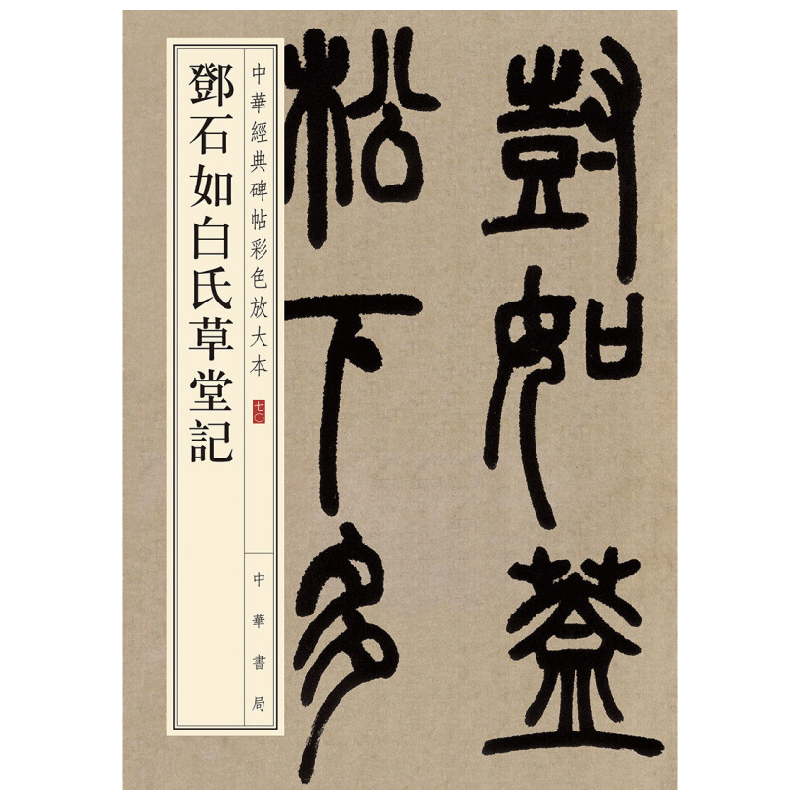 尌如蓋
松下多
中華經典碑帖彩色放大本
七〇
中華書局
鄧石如白氏草堂記